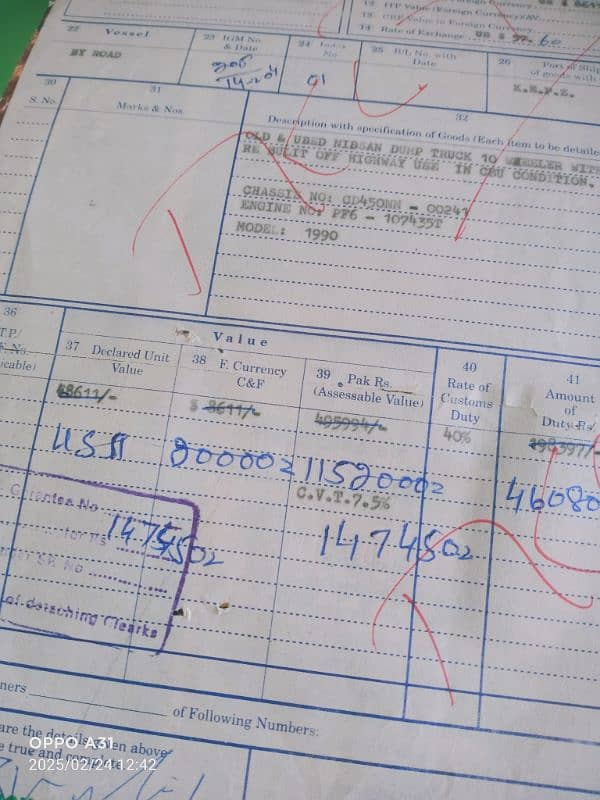 13 CRF Value in Foreign Currency
14 Rate of Exchange US $ 57.60
22 Vessel
BY ROAD
23 IGM No
& Date
24 Index
No
01
25 B/L No. with
Date
26 Port of Ship
of goods with
K.E.P.Z.
30
S. No.
31
Marks & Nos.
32
Description with specification of Goods (Each item to be detailed
OLD & USED NISSAN DUMP TRUCK 10 WHEELER WITH
RE BULIT OFF HIGHWAY USE IN CBU CONDITION.
CHASSIS NO: CD450NN - 00241
ENGINE NO: PF6 - 107435T
MODEL: 1990
Value
36
37 Declared Unit
Value
38 F. Currency
C&F
39 Pak Rs.
(Assessable Value)
40
Rate of
Customs
Duty
41
Amount
of
Duty Rs
$8611/-
$ 8611/-
495994/-
40%
198397/-
US $
20000
1152000
46080
C.V.T.7.5%
Garentee No
for Rs
of detaching Clearks
of Following Numbers:
are the details given above
OPPO A31
2025/02/24 12:42